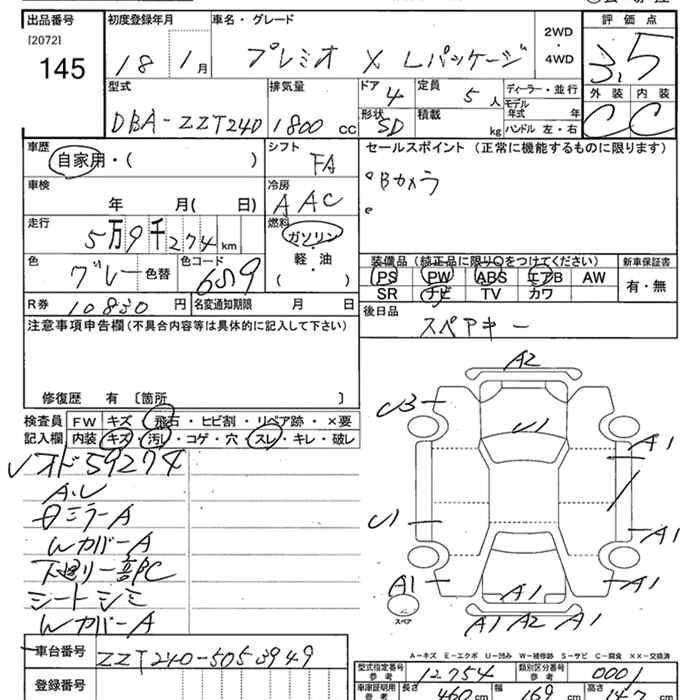 出品番号
[2072]
145
初度登録年月
18 1月
車名・グレード
プレミオ X Lパッケージ
2WD
・
4WD
評価点
3.5
外装 内装
C C
型式
DBA-ZZT240
排気量
1800 cc
ドア
4
形状
SD
定員
5人
積載
kg
ディーラー・並行
モデル年式 年
ハンドル 左・右
車歴
自家用・( )
シフト
FA
車検
年 月( 日)
冷房
AAC
走行
5万9千274km
燃料
ガソリン
・
軽・油
( )
色
グレー 色替
色コード
6S9
R券 10830円
名変通知期限 月 日
セールスポイント (正常に機能するものに限ります)
Bカメラ
装備品 (純正品に限り○をつけてください)
PS PW ABS エアB AW
SR ナビ TV カワ
新車保証書
有・無
後日品
スペアキー
注意事項申告欄(不具合内容等は具体的に記入して下さい)
修復歴 有 〔箇所 〕
検査員 FW キズ・飛石・ヒビ割・リペア跡・×要
記入欄 内装 キズ・汚レ・コゲ・穴・スレ・キレ・破レ
ソオド59274
A.U
ミラーA
Wカバ-A
下廻り一部PC
シートシミ
Wカバ-A
A2
U3
U1
A1
U1
A1
A1
A1
A1
A1 A2 A1
スペア
A-キズ E-エクボ U-凹み W-補修跡 S-サビ C-腐食 XX-交換済
車台番号 ZZT240-5053949
登録番号
型式指定番号
参考
12754
類別区分番号
参考
0001
車庫証明用
参考
長さ 460cm 幅 169cm 高さ 147cm